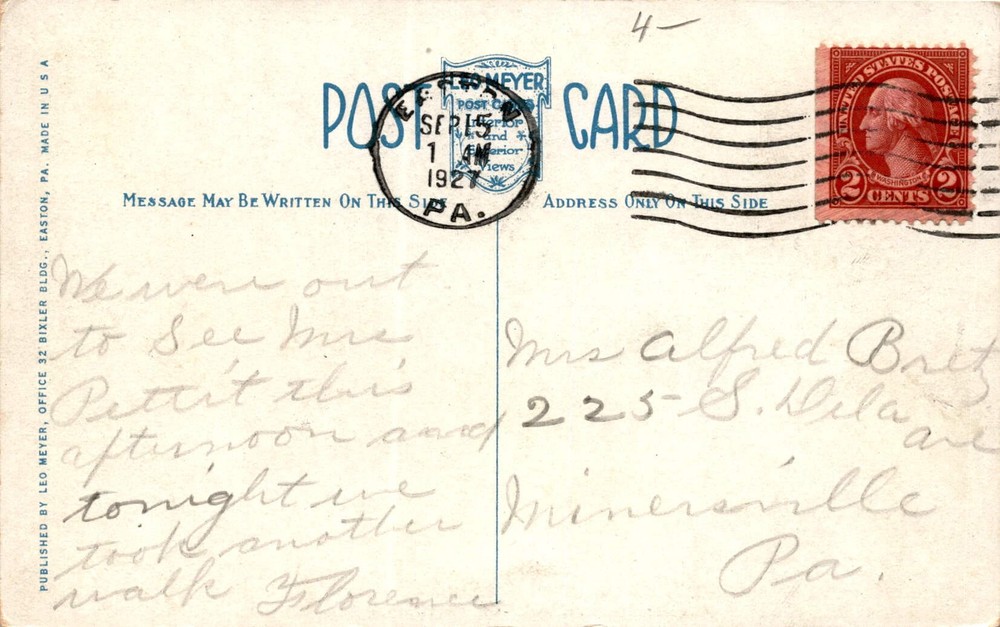 4-
POST CARD
LEO MEYER
POST CARDS
Interior
and
Exterior
Views
EASTON
SEP 15
1 AM
1927
PA.
UNITED STATES POSTAGE
WASHINGTON
2 CENTS 2
MESSAGE MAY BE WRITTEN ON THIS SIDE
ADDRESS ONLY ON THIS SIDE
PUBLISHED BY LEO MEYER, OFFICE 32 BIXLER BLDG., EASTON, PA. MADE IN U S A
We were out
to See Mrs
Pettit this
afternoon and
tonight we
took another
walk Florence
Mrs Alfred Bretz
225 S. Dela
ave
Minersville
Pa.